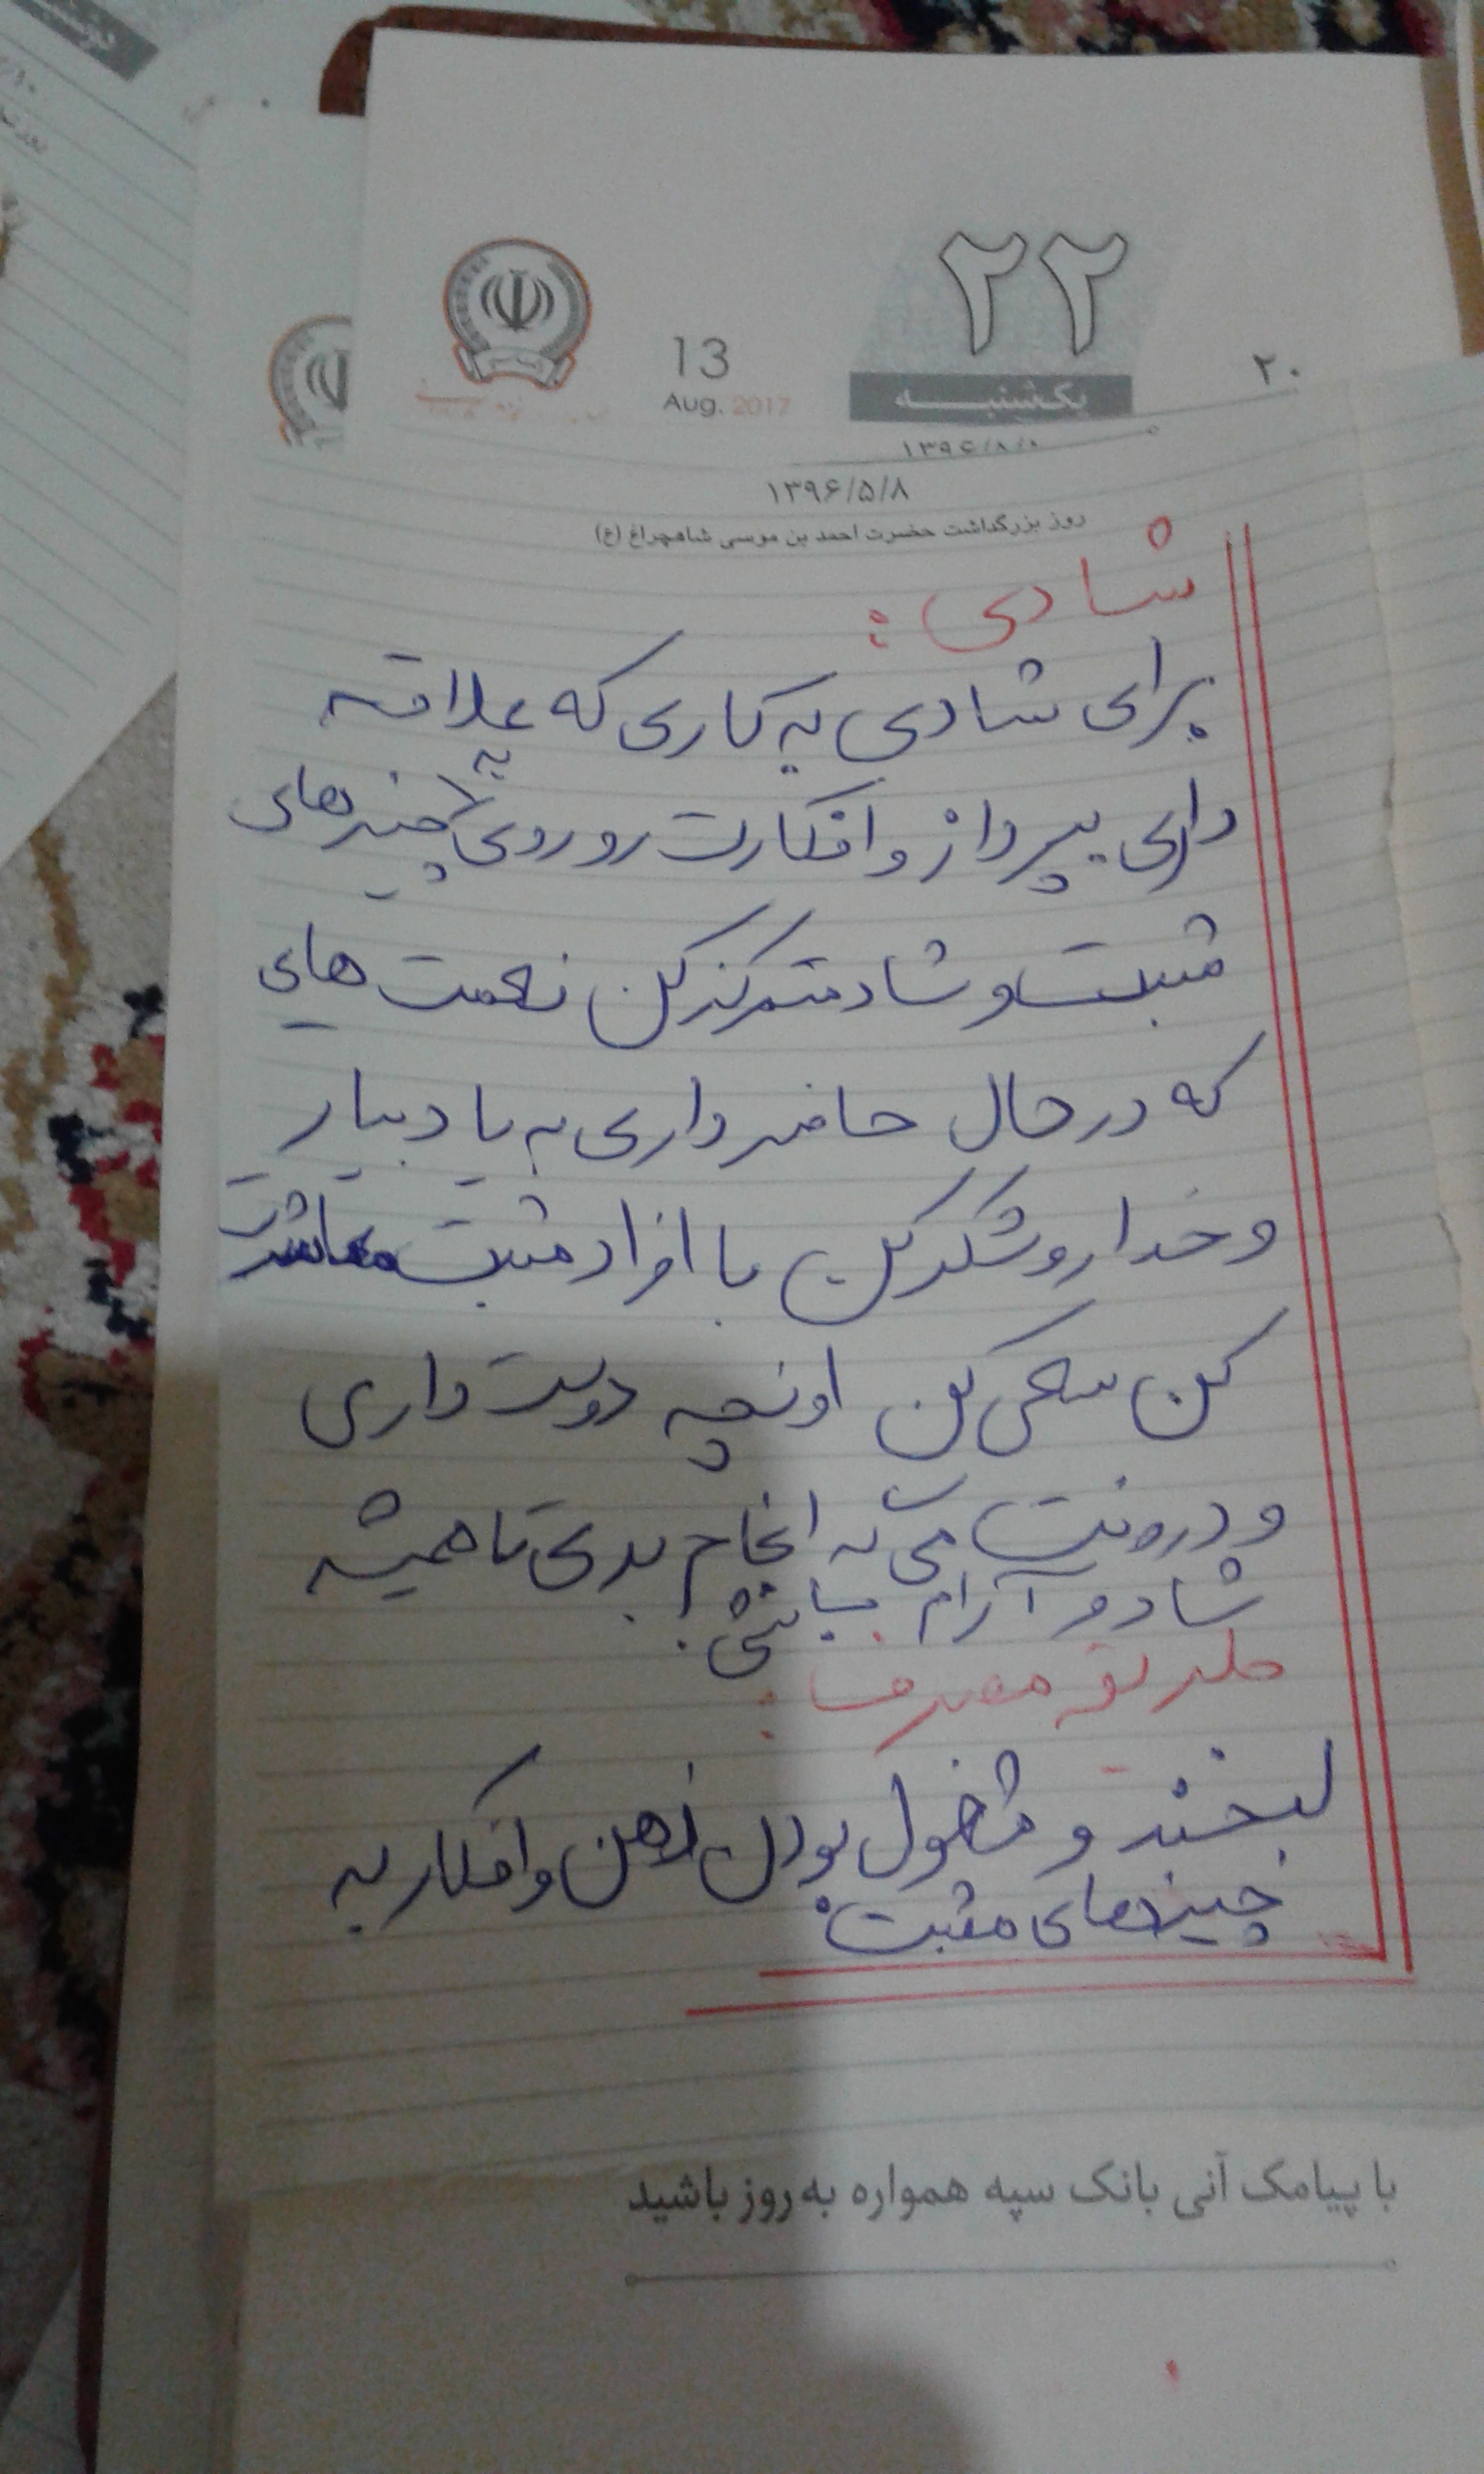 ۲۲
۲۰
13
Aug. 2017
یکشنبه
۱۳۹۶/۵/۸
روز بزرگداشت حضرت احمد بن موسی شاهچراغ (ع)
شادی :
برای شادی به کاری که علاقه
داری بپرداز و افکارت رو روی چیزهای
مثبت و شاد متمرکز کن نعمت های
که در حال حاضر داری به یاد بیار
و خدا رو شکر کن با افراد مثبت معاشرت
کن سعی کن اونچه دوست داری
و درونت می گه انجام بدی تا همیشه
شاد و آرام باشی.
طریقه مصرف :
لبخند و مشغول بودن ذهن و افکار به
چیزهای مثبت.
با پیامک آنی بانک سپه همواره به روز باشید